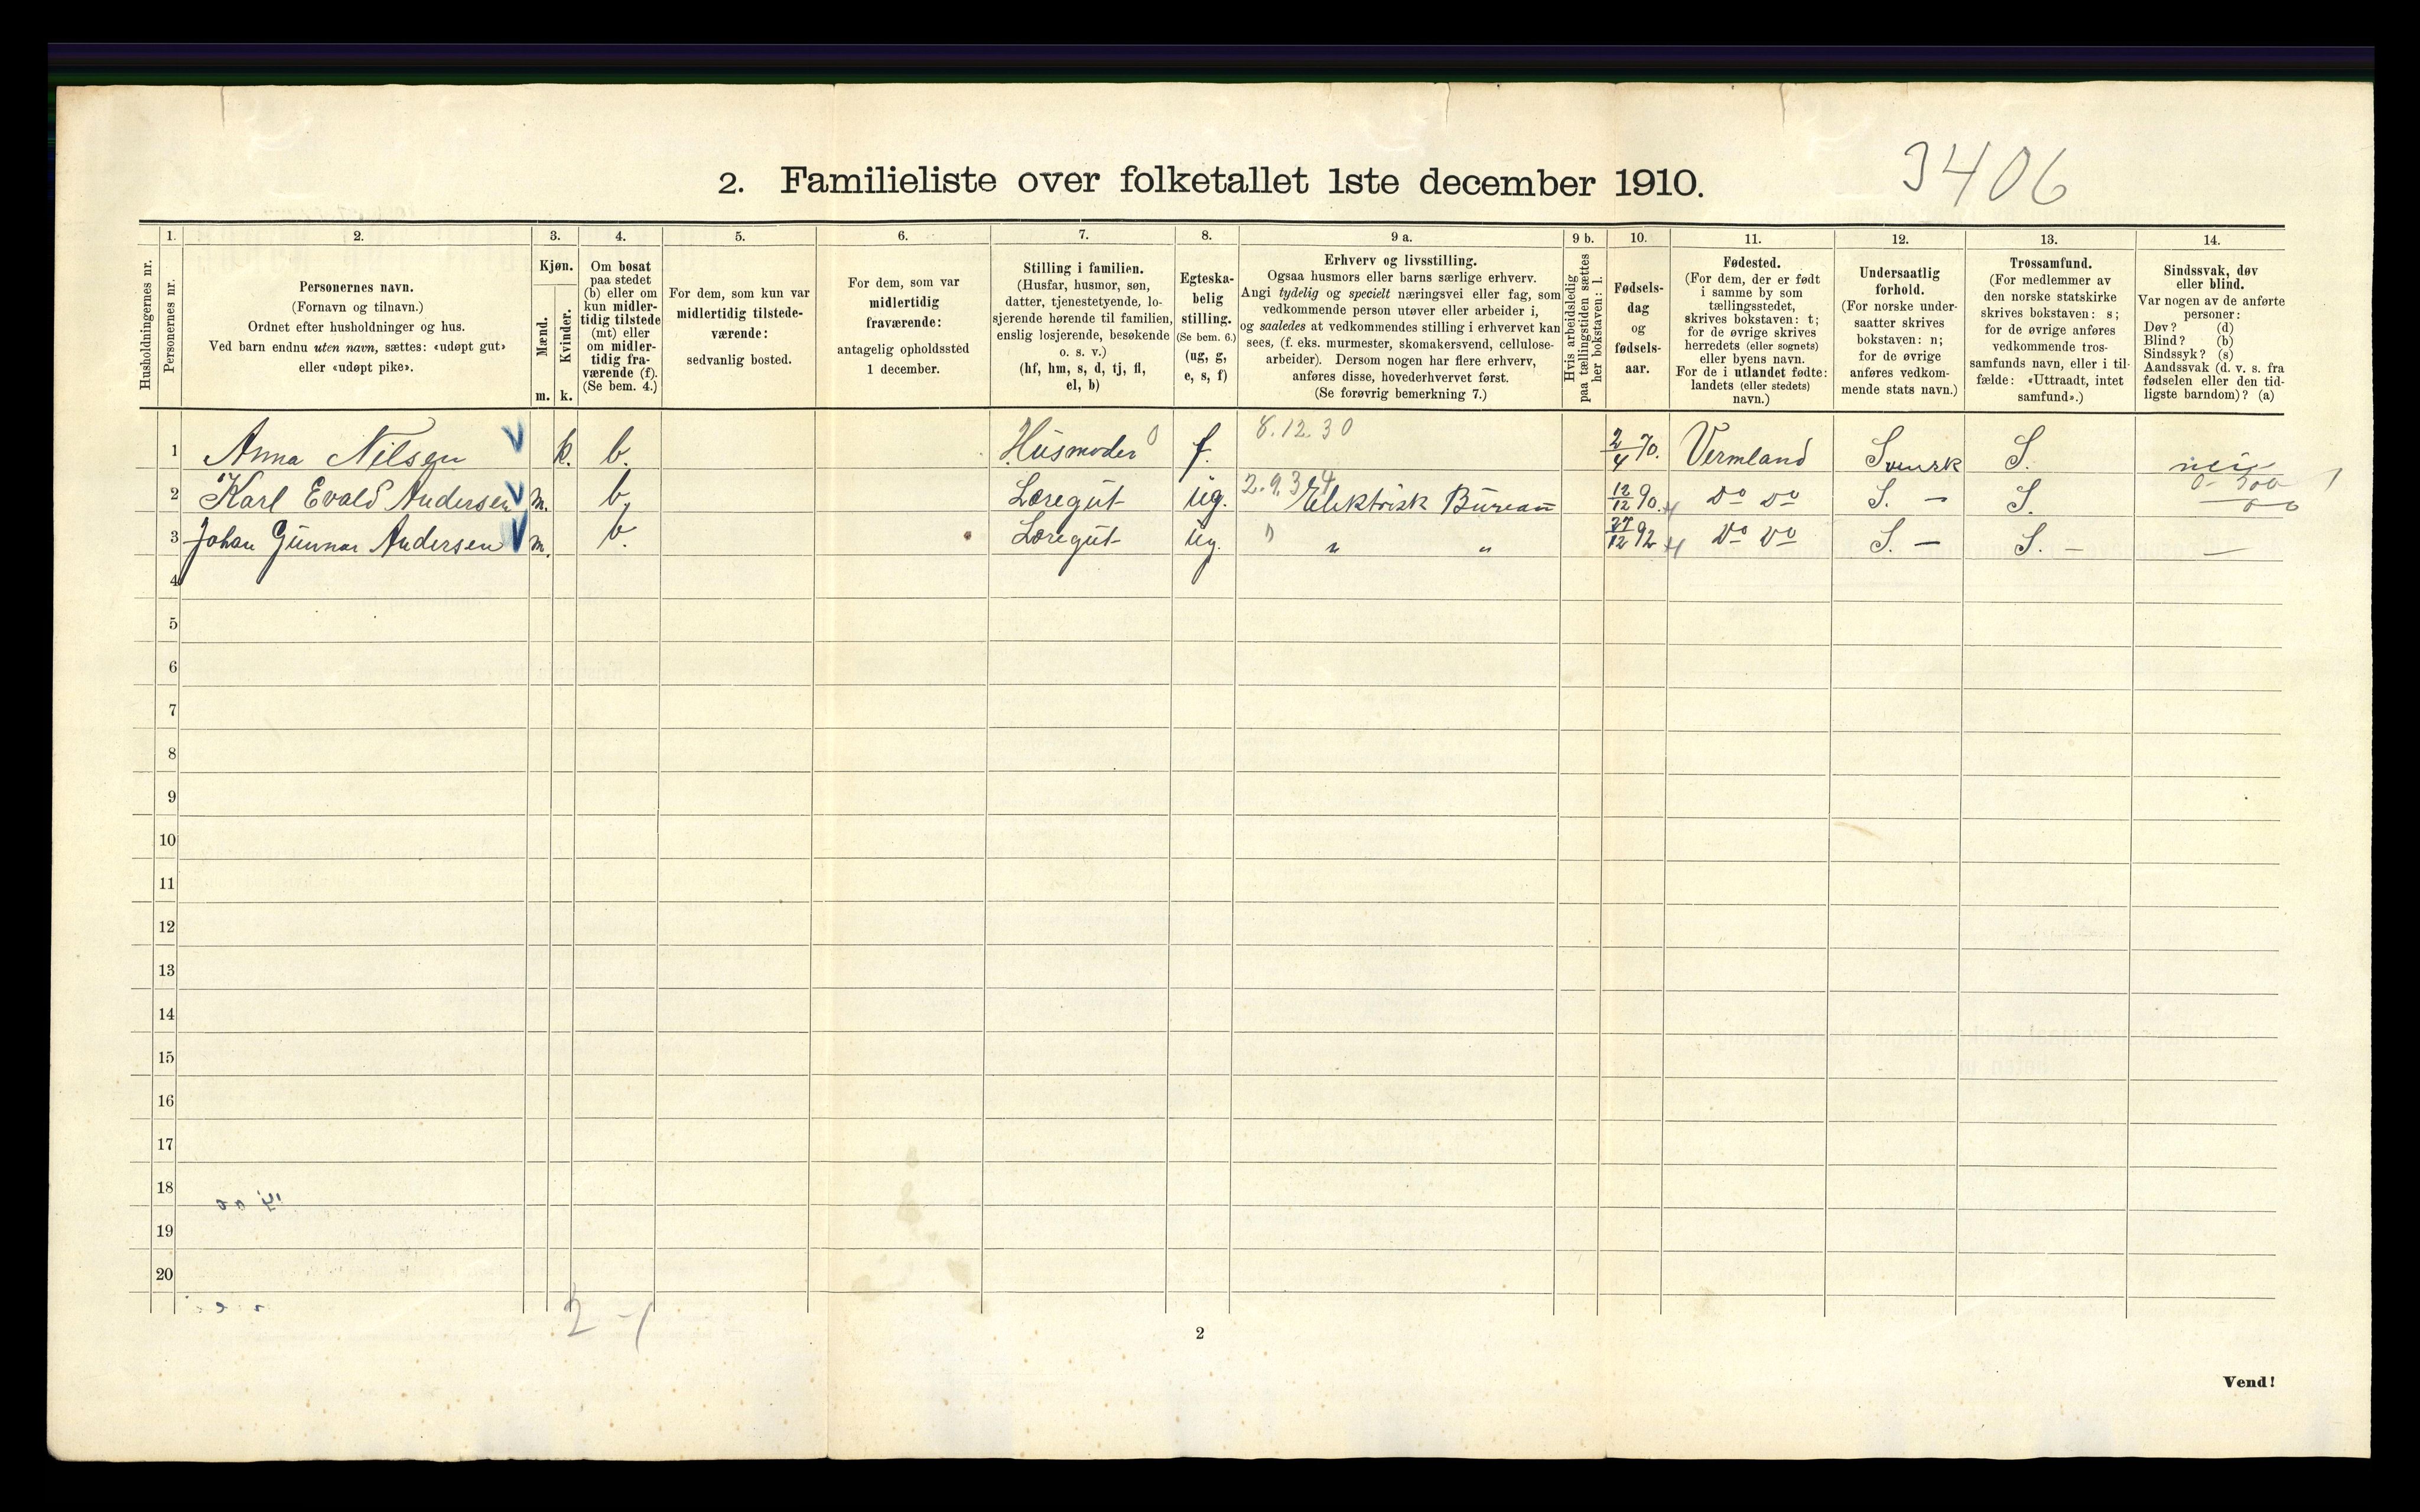 3406
2. Familieliste over folketallet 1ste december 1910.
Husholdningernes nr.
1.
Personernes nr.
2.
Personernes navn.
(Fornavn og tilnavn.)
Ordnet efter husholdninger og hus.
Ved barn endnu uten navn, sættes: «udøpt gut»
eller «udøpt pike».
3.
Kjøn.
Mænd.
Kvinder.
m.
k.
4.
Om bosat
paa stedet
(b) eller om
kun midler-
tidig tilstede
(mt) eller
om midler-
tidig fra-
værende (f).
(Se bem. 4.)
5.
For dem, som kun var
midlertidig tilstede-
værende:
sedvanlig bosted.
6.
For dem, som var
midlertidig
fraværende:
antagelig opholdssted
1 december.
7.
Stilling i familien.
(Husfar, husmor, søn,
datter, tjenestetyende, lo-
sjerende hørende til familien,
enslig losjerende, besøkende
o. s. v.)
(hf, hm, s, d, tj, fl,
el, b)
8.
Egteska-
belig
stilling.
(Se bem. 6.)
(ug, g,
e, s, f)
9 a.
Erhverv og livsstilling.
Ogsaa husmors eller barns særlige erhverv.
Angi tydelig og specielt næringsvei eller fag, som
vedkommende person utøver eller arbeider i,
og saaledes at vedkommendes stilling i erhvervet kan
sees, (f. eks. murmester, skomakersvend, cellulose-
arbeider). Dersom nogen har flere erhverv,
anføres disse, hovederhvervet først.
(Se forøvrig bemerkning 7.)
9 b.
Hvis arbeidsledig
paa tællingstiden sættes
her bokstaven: l.
10.
Fødsels-
dag
og
fødsels-
aar.
11.
Fødested.
(For dem, der er født
i samme by som
tællingsstedet,
skrives bokstaven: t;
for de øvrige skrives
herredets (eller sognets)
eller byens navn.
For de i utlandet fødte:
landets (eller stedets)
navn.)
12.
Undersaatlig
forhold.
(For norske under-
saatter skrives
bokstaven: n;
for de øvrige
anføres vedkom-
mende stats navn.)
13.
Trossamfund.
(For medlemmer av
den norske statskirke
skrives bokstaven: s;
for de øvrige anføres
vedkommende tros-
samfunds navn, eller i til-
fælde: «Uttraadt, intet
samfund».)
14.
Sindssvak, døv
eller blind.
Var nogen av de anførte
personer:
Døv? (d)
Blind? (b)
Sindssyk? (s)
Aandssvak (d. v. s. fra
fødselen eller den tid-
ligste barndom)? (a)
1 Anna Nilsen k. b. Husmoder 0 f. 8.12.30 2/4 70. Vermland Svensk S. nei
2 Karl Evald Andersen m. b. Læregut ug. 2.9.34 Elektrisk Bureau 12/12 90. do do S. — S.
3 Johan Gunnar Andersen m. b. Læregut ug. " " " 27/12 92 do do S. — S. — —
4
5
6
7
8
9
10
11
12
13
14
15
16
17
18
19
20
2 - 1
2
Vend!